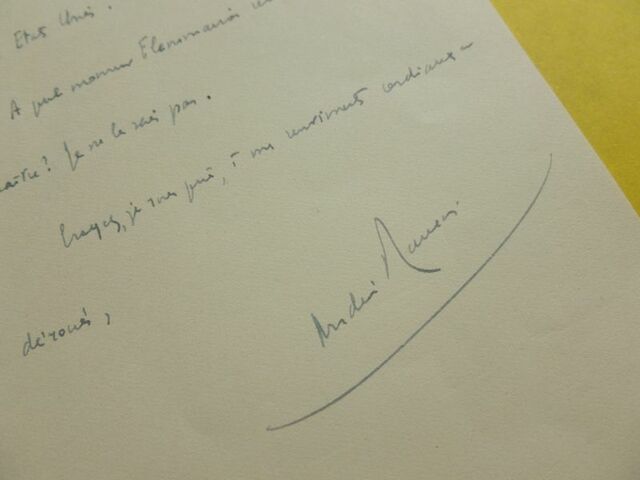 Etats Unis.
A quel moment Flammarion
? Je ne le sais pas.
Croyez, je vous prie, à mes sentiments cordialement
dévoués,
André Maurois